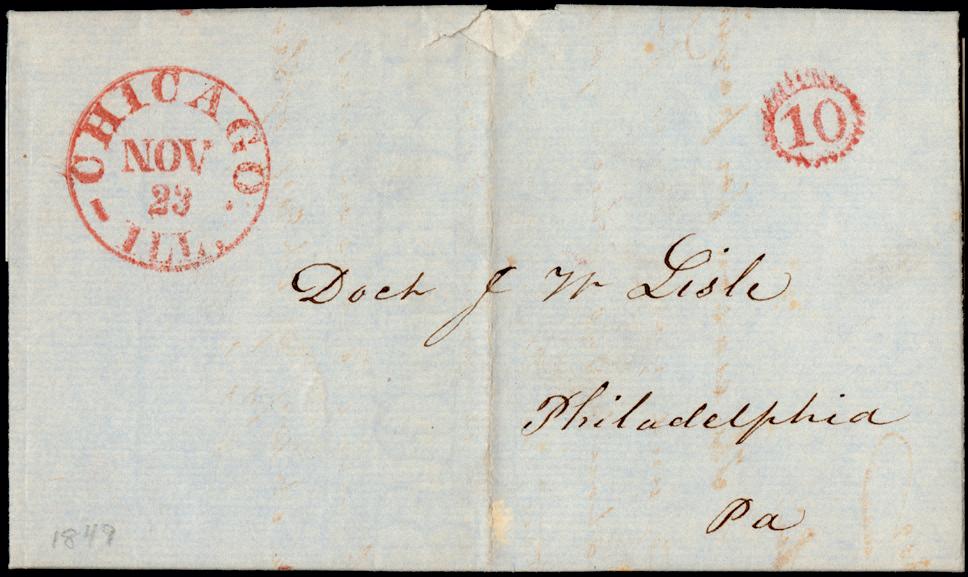 CHICAGO
NOV
23
ILL.
10
Doct J W Lisle
Philadelphia
Pa
1849